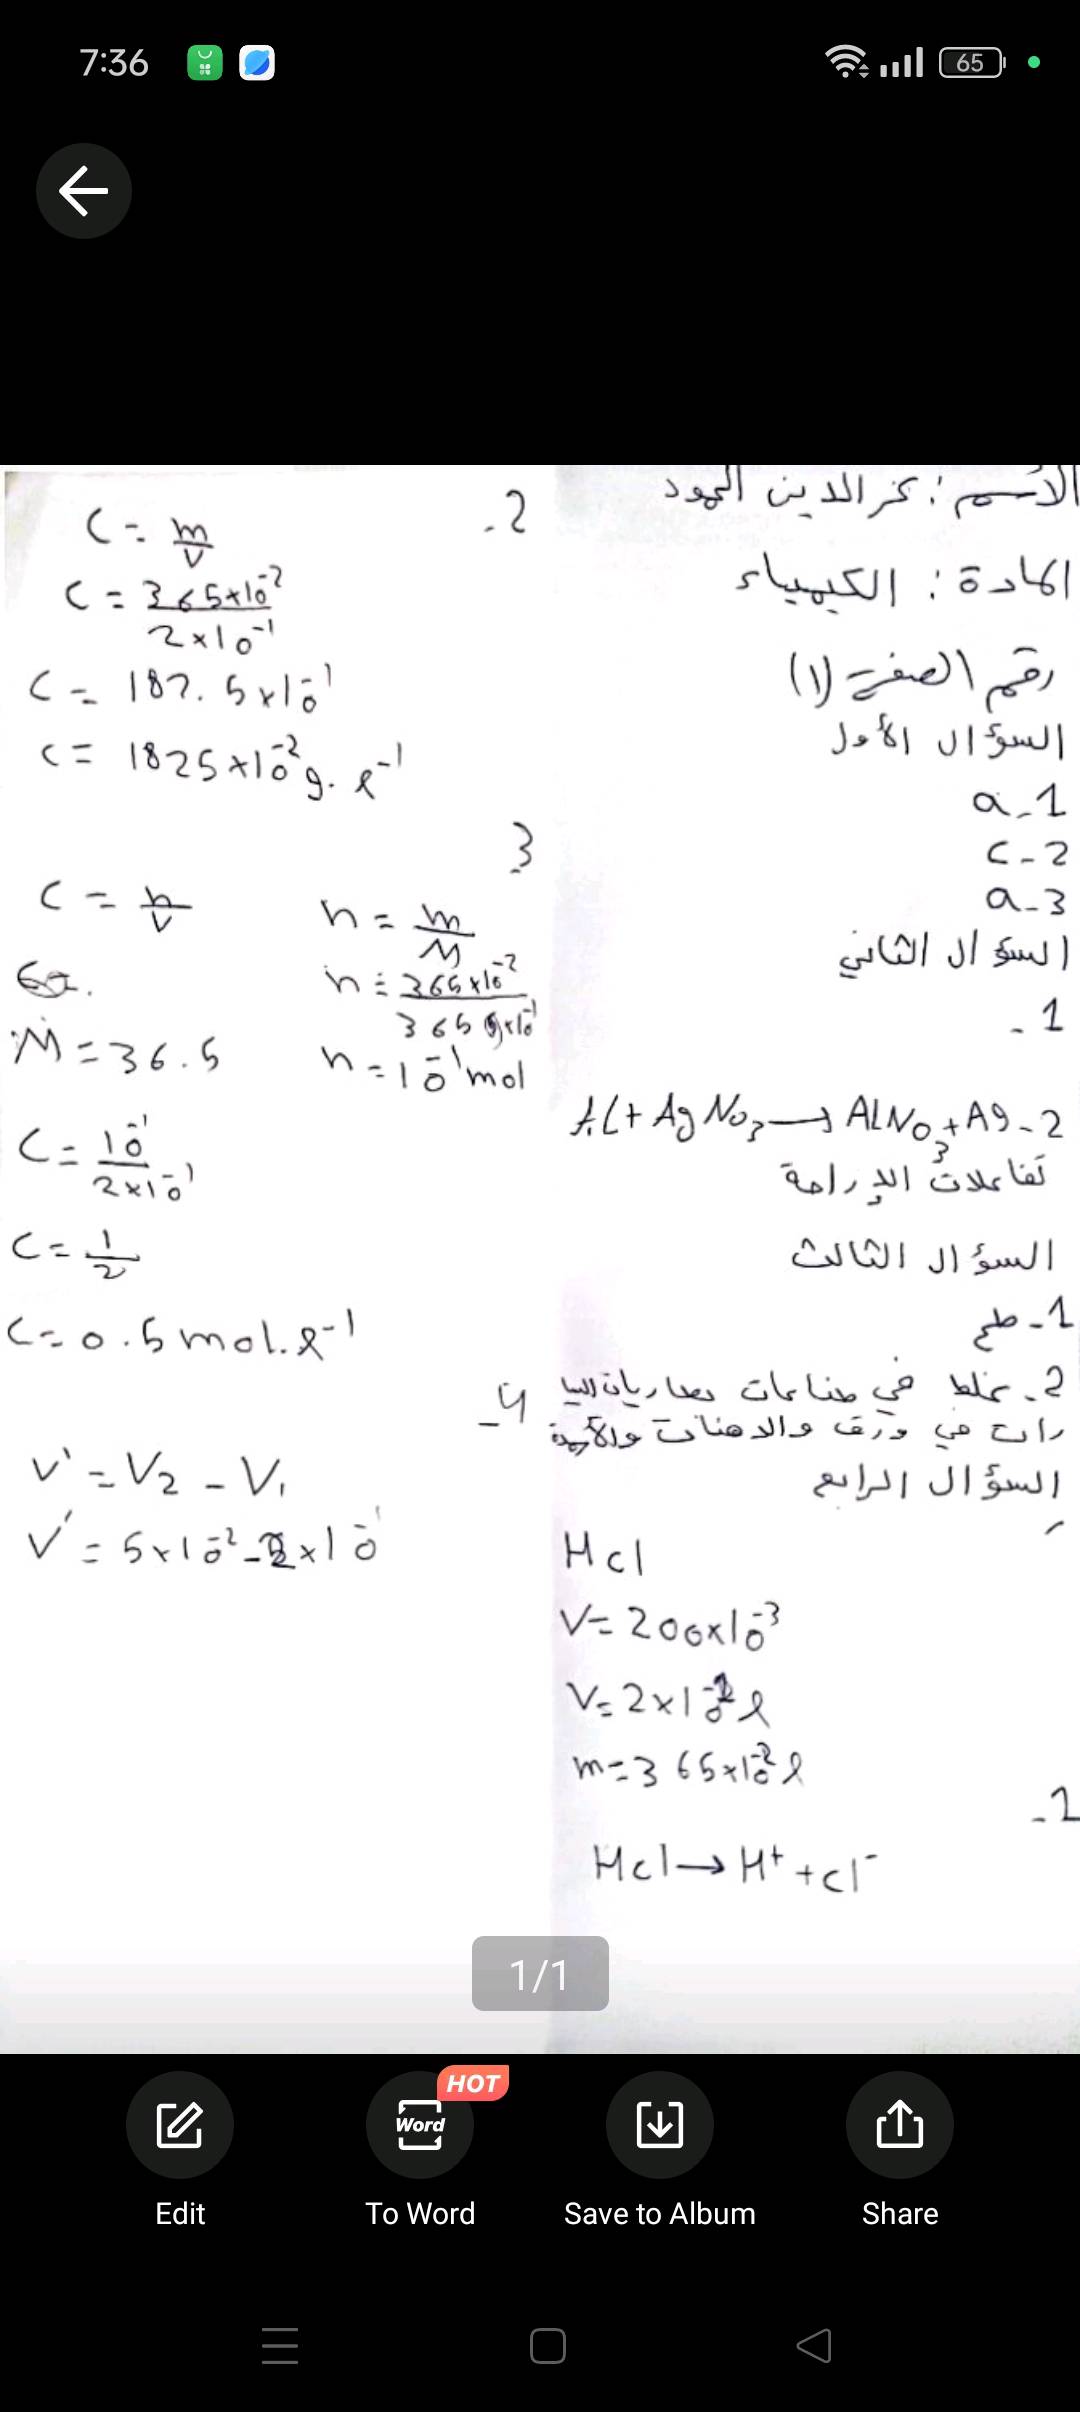 7:36
65
الأسم : عز الدين الحمود
المادة : الكيمياء
رقم الصفحة (1)
السؤال الأول
a - 1
c - 2
a - 3
السؤال الثاني
1 -
Al + AgNO3 → ALNO3 + Ag - 2
تفاعلات الإزاحة
السؤال الثالث
1 - ملح
2 -
في صناعات بطاريات السيا
رات في ورق والدهنات والأسمدة
السؤال الرابع
Hcl
V = 200x10^-3
V = 2x10^-1 l
m = 365x10^-2 l
1 -
Hcl → H+ + cl-
2 -
C = m/V
C = 365x10^-2 / 2x10^-1
C = 182.5x10^-1
C = 1825x10^-2 g.l^-1
3 -
C = n/V
n = m/M
n = 365x10^-2 / 365x10^-1
M = 36.5
n = 10^-1 mol
C = 10^-1 / 2x10^-1
C = 1/2
C = 0.5 mol.l^-1
4 -
V' = V2 - V1
V' = 5x10^-2 - 2x10^-1
1/1
HOT
Word
Edit
To Word
Save to Album
Share